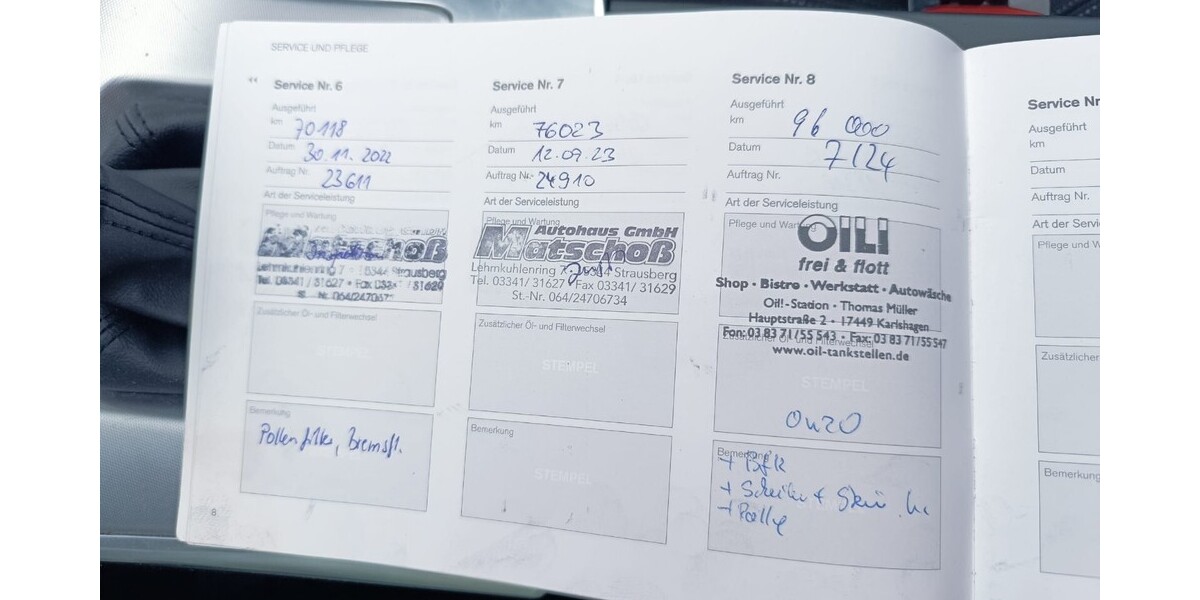 SERVICE UND PFLEGE
Service Nr. 6
Ausgeführt
km 70118
Datum 30.11.2022
Auftrag Nr. 23611
Art der Serviceleistung
Pflege und Wartung
Lehmkuhlenring 7 · 15344 Strausberg
Tel. 03341/ 31627 · Fax 03341/ 31629
St.-Nr. 064/24706734
Zusätzlicher Öl- und Filterwechsel
Bemerkung
Pollenfilter, Bremsfl.
8
Service Nr. 7
Ausgeführt
km 76023
Datum 12.09.23
Auftrag Nr. 24910
Art der Serviceleistung
Pflege und Wartung
Autohaus GmbH
Matschoß
Lehmkuhlenring 7 · 15344 Strausberg
Tel. 03341/ 31627 · Fax 03341/ 31629
St.-Nr. 064/24706734
Zusätzlicher Öl- und Filterwechsel
STEMPEL
Bemerkung
STEMPEL
Service Nr. 8
Ausgeführt
km 96 000
Datum 7/24
Auftrag Nr.
Art der Serviceleistung
Pflege und Wartung
OIL!
frei & flott
Shop · Bistro · Werkstatt · Autowäsche
Oil!-Station · Thomas Müller
Hauptstraße 2 · 17449 Karlshagen
Fon: 03 83 71/55 543 · Fax: 03 83 71/55 547
Zusätzlicher Öl- und Filterwechsel
www.oil-tankstellen.de
STEMPEL
0W20
Bemerkung
Service Nr
Ausgeführt
km
Datum
Auftrag Nr.
Art der Servi
Pflege und W
Zusätzlicher
Bemerkung